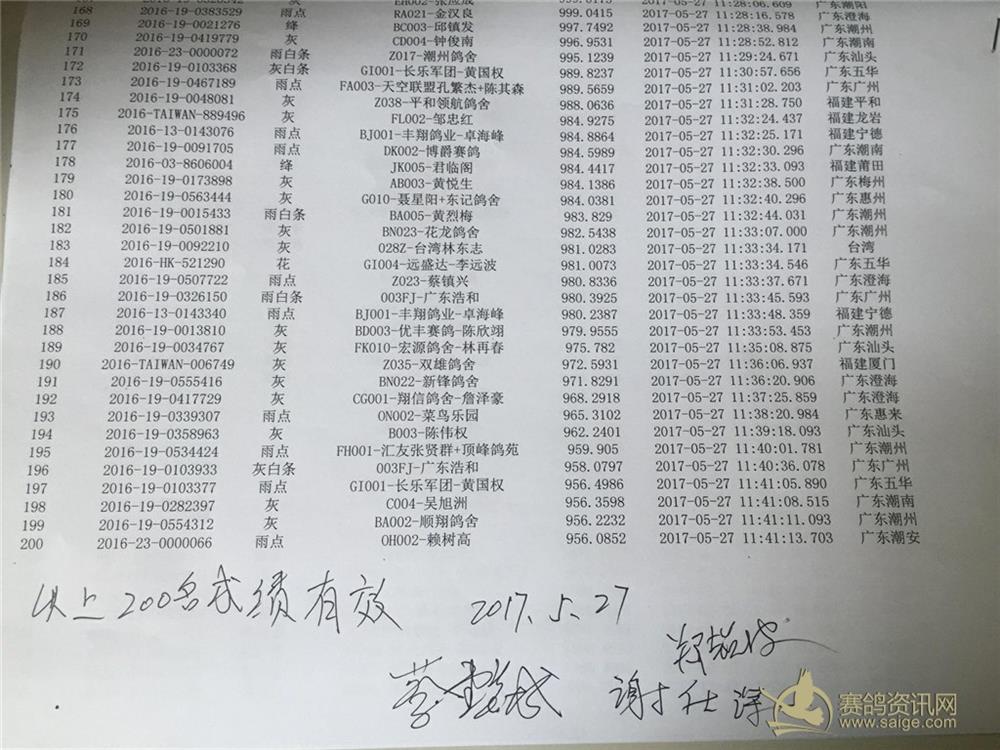 168 2016-19-0383529 雨点 RA021-金汉良 999.0415 2017-05-27 11:28:16.578 广东澄海
169 2016-19-0021276 绛 BC003-邱镇发 997.7492 2017-05-27 11:28:38.984 广东潮州
170 2016-19-0419779 灰 CD004-钟俊南 996.9531 2017-05-27 11:28:52.812 广东潮南
171 2016-23-0000072 雨白条 Z017-潮州鸽舍 995.1239 2017-05-27 11:29:24.671 广东汕头
172 2016-19-0103368 灰白条 GI001-长乐军团-黄国权 989.8237 2017-05-27 11:30:57.656 广东五华
173 2016-19-0467189 雨点 FA003-天空联盟孔繁杰+陈其森 989.5659 2017-05-27 11:31:02.203 广东广州
174 2016-19-0048081 灰 Z038-平和领航鸽舍 988.0636 2017-05-27 11:31:28.750 福建平和
175 2016-TAIWAN-889496 灰 FL002-邹忠红 984.9275 2017-05-27 11:32:24.437 福建龙岩
176 2016-13-0143076 雨点 BJ001-丰翔鸽业-卓海峰 984.8864 2017-05-27 11:32:25.171 福建宁德
177 2016-19-0091705 雨点 DK002-博爵赛鸽 984.5989 2017-05-27 11:32:30.296 广东潮南
178 2016-03-8606004 绛 JK005-君临阁 984.4417 2017-05-27 11:32:33.093 福建莆田
179 2016-19-0173898 灰 AB003-黄悦生 984.1386 2017-05-27 11:32:38.500 广东梅州
180 2016-19-0563444 灰 G010-聂星阳+东记鸽舍 984.0381 2017-05-27 11:32:40.296 广东惠州
181 2016-19-0015433 雨白条 BA005-黄烈梅 983.829 2017-05-27 11:32:44.031 广东潮州
182 2016-19-0501881 灰 BN023-花龙鸽舍 982.5438 2017-05-27 11:33:07.000 广东潮州
183 2016-19-0092210 灰 028Z-台湾林东志 981.0283 2017-05-27 11:33:34.171 台湾
184 2016-HK-521290 花 GI004-远盛达-李远波 981.0073 2017-05-27 11:33:34.546 广东五华
185 2016-19-0507722 雨点 Z023-蔡镇兴 980.8336 2017-05-27 11:33:37.671 广东澄海
186 2016-19-0326150 雨白条 003FJ-广东浩和 980.3925 2017-05-27 11:33:45.593 广东广州
187 2016-13-0143340 雨点 BJ001-丰翔鸽业-卓海峰 980.2387 2017-05-27 11:33:48.359 福建宁德
188 2016-19-0013810 灰 BD003-优丰赛鸽-陈欣翊 979.9555 2017-05-27 11:33:53.453 广东潮州
189 2016-19-0034767 灰 FK010-宏源鸽舍-林再春 975.782 2017-05-27 11:35:08.875 广东汕头
190 2016-TAIWAN-006749 灰 Z035-双雄鸽舍 972.5931 2017-05-27 11:36:06.937 福建厦门
191 2016-19-0555416 灰 BN022-新锋鸽舍 971.8291 2017-05-27 11:36:20.906 广东澄海
192 2016-19-0417729 灰 CG001-翔信鸽舍-詹泽豪 968.2918 2017-05-27 11:37:25.859 广东澄海
193 2016-19-0339307 雨点 ON002-菜鸟乐园 965.3102 2017-05-27 11:38:20.984 广东惠来
194 2016-19-0358963 灰 B003-陈伟权 962.2401 2017-05-27 11:39:18.093 广东汕头
195 2016-19-0534424 雨点 FH001-汇友张贤群+顶峰鸽苑 959.905 2017-05-27 11:40:01.781 广东潮南
196 2016-19-0103933 灰白条 003FJ-广东浩和 958.0797 2017-05-27 11:40:36.078 广东广州
197 2016-19-0103377 雨点 GI001-长乐军团-黄国权 956.4986 2017-05-27 11:41:05.890 广东五华
198 2016-19-0282397 灰 C004-吴旭洲 956.3598 2017-05-27 11:41:08.515 广东潮南
199 2016-19-0554312 灰 BA002-顺翔鸽舍 956.2232 2017-05-27 11:41:11.093 广东潮州
200 2016-23-0000066 雨点 OH002-赖树高 956.0852 2017-05-27 11:41:13.703 广东潮安
以上200名成绩有效 2017.5.27
蔡 谢仕
赛鸽资讯网
www.saige.com